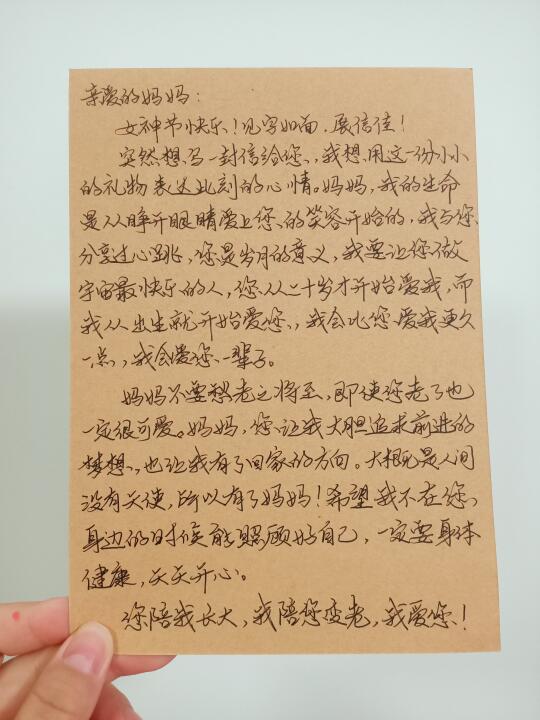 亲爱的妈妈：
女神节快乐！见字如面，展信佳！
突然想写一封信给您，我想用这一份小小
的礼物表达此刻的心情。妈妈，我的生命
是从睁开眼睛爱上您的笑容开始的，我与您
分享过心跳，您是岁月的意义，我要让您做
宇宙最快乐的人，您从二十岁才开始爱我，而
我从出生就开始爱您，我会比您爱我更久
一点，我会爱您一辈子。
妈妈不要愁老之将至，即使您老了也
一定很可爱。妈妈，您让我大胆追求前进的
梦想，也让我有了回家的方向。大概是人间
没有天使，所以有了妈妈！希望我不在您
身边的时候能照顾好自己，一定要身体
健康，天天开心。
您陪我长大，我陪您变老，我爱您！